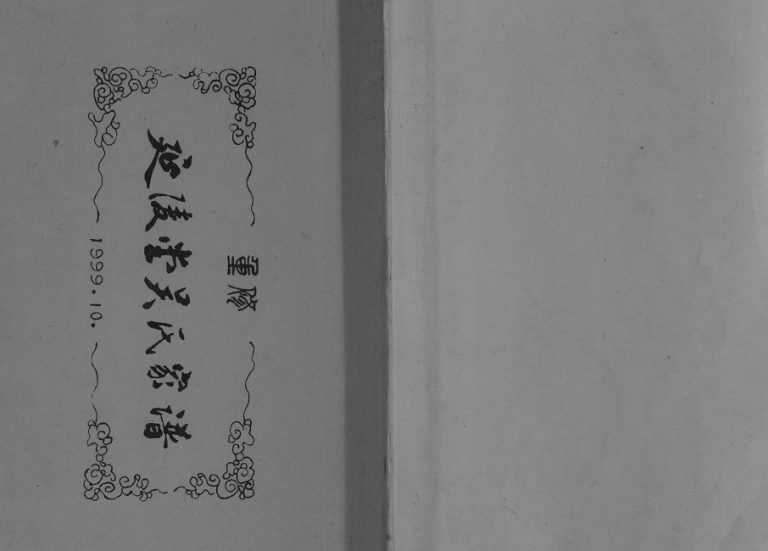 重修
延陵堂吴氏家谱
1999.10.